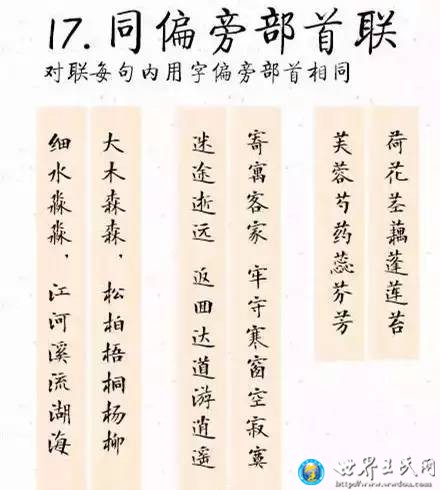 17.同偏旁部首联
对联每句内用字偏旁部首相同
荷花茎藕蓬莲苔
芙蓉芍药蕊芬芳
寄寓客家 牢守寒窗空寂寞
迷途逝远 返回达道游逍遥
大木森森，松柏梧桐杨柳
细水淼淼，江河溪流湖海
世界王氏网